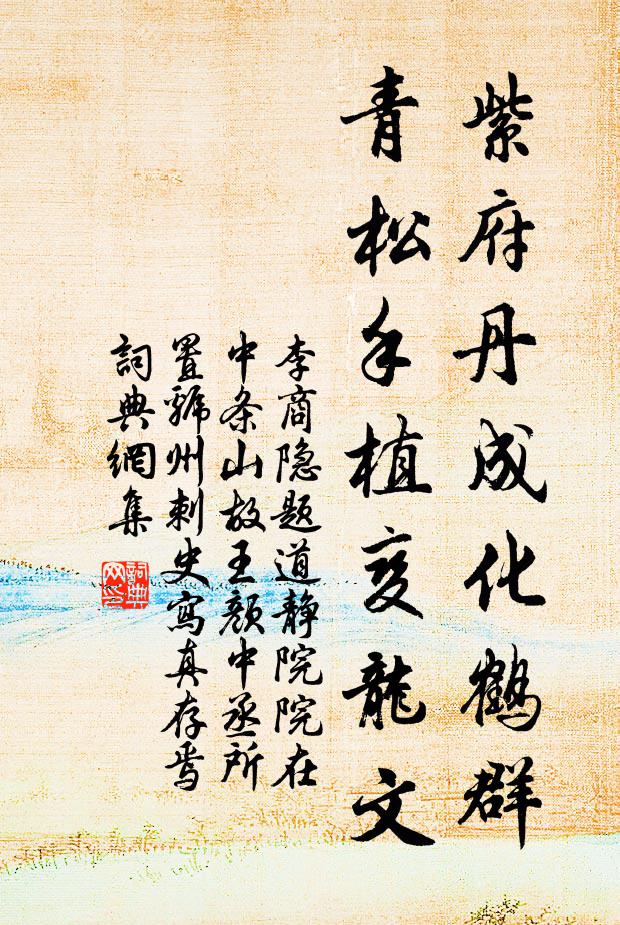 紫府丹成化鹤群
青松手植变龙文
李商隐题道静院院在
中条山故王颜中丞所
置虢州刺史寫真存焉
詞典網集